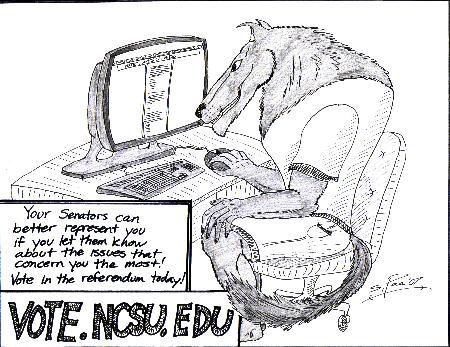 Your Senators can
better represent you
if you let them know
about the issues that
concern you the most!
Vote in the referendum today!
VOTE.NCSU.EDU